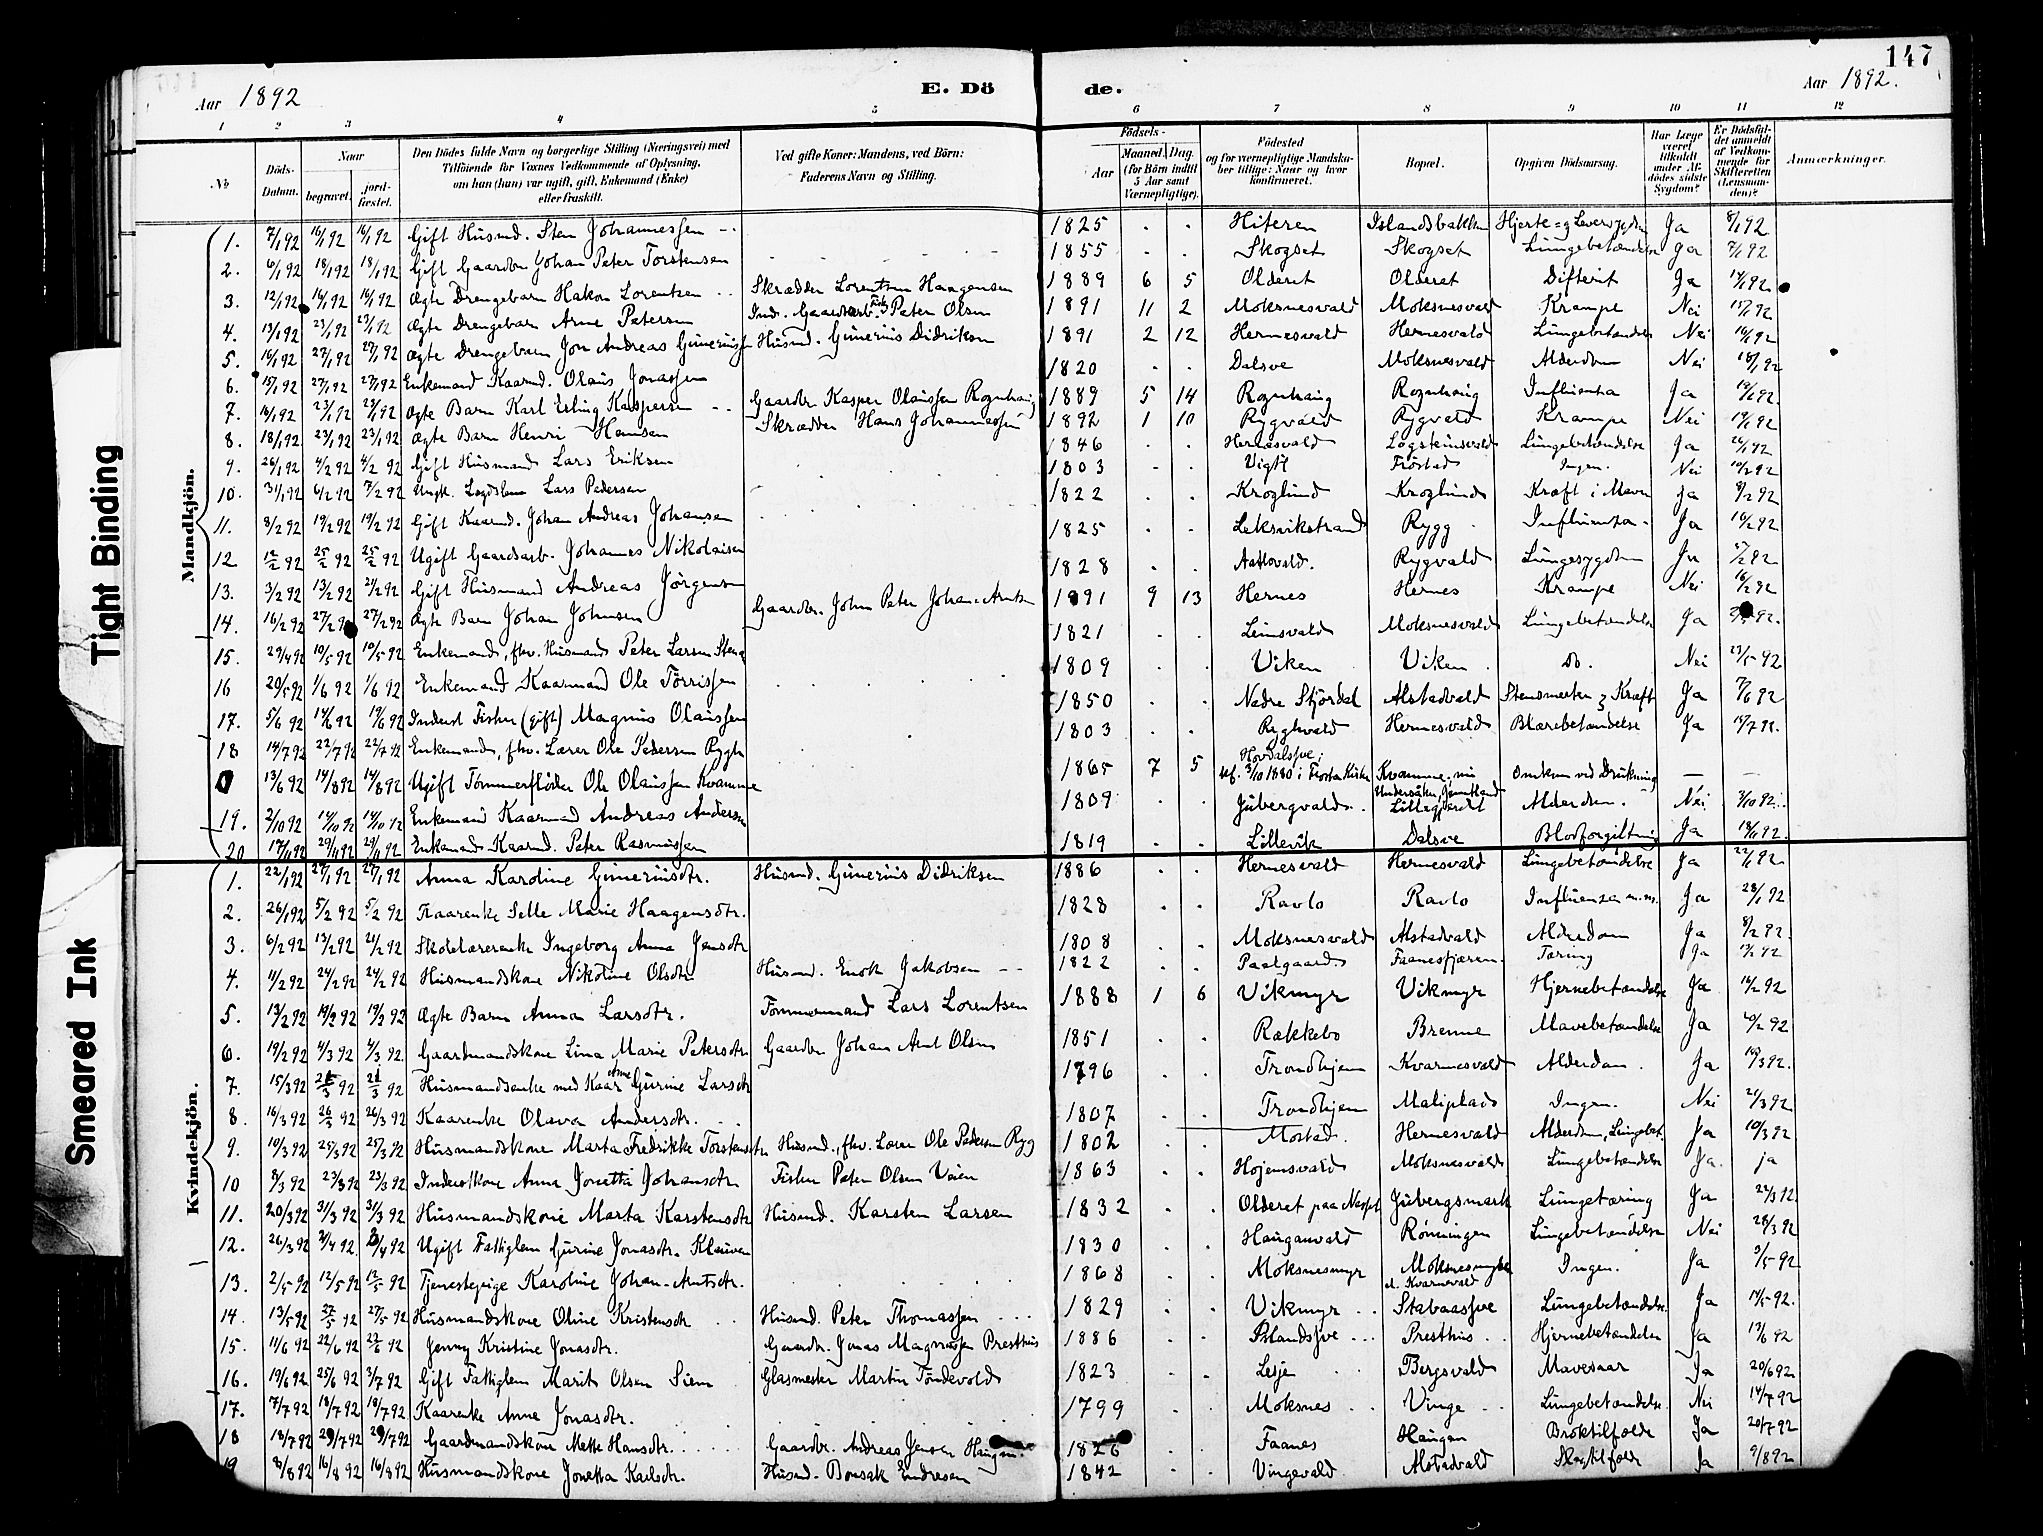 147
Aar 1892
E. Dö de.
Aar 1892.
1 2 3 4 5 6 7 8 9 10 11 12
No
Döds-Datum.
Naar
begravet.
jord-fæstet.
Den Dödes fulde Navn og borgerlige Stilling (Næringsvei) med
Tilföiende for Voxnes Vedkommende af Oplysning,
om han (hun) var ugift, gift, Enkemand (Enke)
eller fraskilt.
Ved gifte Koner: Mandens, ved Börn:
Faderens Navn og Stilling.
Födsels-
Aar
Maaned. Dag.
(for Börn indtil
5 Aar samt
Værnepligtige).
Födested
og for værnepligtige Mandska-
ber tillige: Naar og hvor
konfirmeret.
Bopæl.
Opgiven Dödsaarsag.
Har Læge
været
tilkaldt
under Af-
dödes sidste
Sygdom?
Er Dödsfal-
det anmeldt
af Vedkom-
mende for
Skifteretten
(Lensman-
den)?
Anmærkninger.
Mandkjön.
1. 7/1 92 16/1 92 16/1 92 Gift Husmd. Sten Johannessen 1825 Hiteren Islandsbakken Ja 8/1 92
2. 6/1 92 18/1 92 18/1 92 Gift Gaardbr Johan Peter Torstensen 1855 Skogset Skogset Lungebetændelse Ja 7/1 92
3. 12/1 92 16/1 92 16/1 92 Ægte Drengebarn Hakon Lorentsen Skrædder Lorentsen Haagensen 1889 6 5 Olderet Olderet Difterit Ja
4. 13/1 92 23/1 92 23/1 92 Ægte Drengebarn Arne Petersen Ind. Gaardsarb. Peter Olsen 1891 11 2 Moksnesvald Moksnesvald Krampe Nei 15/1 92
5. 16/1 92 27/1 92 27/1 92 Ægte Drengebarn Jon Andreas Guneriussen Husmd. Gunerius Didriksen 1891 2 12 Hernesvald Hernesvald Lungebetændelse Nei 16/1 92
6. 15/1 92 27/1 92 27/1 92 Enkemand Kaarmd. Olaus Jonassen 1820 Dalsve Moksnesvald Alderdom Nei 18/1 92
7. 16/1 92 23/1 92 23/1 92 Ægte Barn Karl Erling Kaspersen Gaardbr Kasper Olaussen Rognhaug 1889 5 14 Rognhaug Rognhaug Influensa Ja 19/1 92
8. 18/1 92 23/1 92 23/1 92 Ægte Barn Henri Hansen Skrædder Hans Johannessen 1892 1 10 Rygvald Rygvald Krampe Nei 19/1 92
9. 26/1 92 4/2 92 4/2 92 Gift Husmand Lars Eriksen 1846 Hernesvald Logsteinsvald Lungebetændelse Ja
10. 31/1 92 6/2 92 7/2 92 Lægdslem Lars Pedersen 1803 Vigtil Frostad Ingen. Nei 10/2 92
11. 8/2 92 19/2 92 19/2 92 Gift Kaarmd. Johan Andreas Johansen 1822 Kroglund Kroglund Kræft i Maven Ja 9/2 92
12 12/2 92 25/2 92 25/2 92 Ugift Gaardsarb. Johannes Nikolaisen 1825 Leksvikstrand Rygg Influensa Ja 16/2 92
13. 3/2 92 13/2 92 21/2 92 Gift Husmand Andreas Jörgensen 1828 Rygvald Lungesygdom Ja
14. 16/2 92 27/2 92 27/2 92 Ægte Barn Johan Johnsen Gaardbr. John Peter Johan-Arntsen 1891 9 13 Hernes Hernes Krampe Nei 16/2 92
15. 29/4 92 10/5 92 10/5 92 Enkemand, fhv. Husmand Peter Larsen 1821 Leinsvald Moksnesvald Lungebetændelse Ja
16 20/5 92 1/6 92 1/6 92 Enkemand Kaarmand Ole Törrissen 1809 Viken Viken do. Nei 23/5 92
17. 5/6 92 14/6 92 14/6 92 Inderst Fisker (gift) Magnus Olaussen 1850 Nedre Stjördal Alstadvald Stensmerter & Kræft Ja 7/6 92
18 14/7 92 22/7 92 22/7 92 Enkemand, fhv. Lærer Ole Pedersen Rygh 1803 Ryghvald Hernesvald Blærebetændelse Ja 15/7 92
13/6 92 14/8 92 14/8 92 Ugift Tömmerflöder Ole Olaussen Kvamme 1865 7 5 Hovdalssve; kf. 3/10 1880 i Frosta Kirke Kvamme, nu Undersåker, Jemtland Omkom ved Drukning — —
19. 2/10 92 14/10 92 14/10 92 Enkemand Kaarmand Andreas Andersen 1809 Jubergvald Lillegjerdet Alderdom. Nei 3/10 92
20 17/11 92 29/11 92 29/11 92 Enkemand Kaarmd. Peter Rasmussen 1819 Lillevik Dalsve Blodforgiftning Ja
Kvindekjön.
1. 22/1 92 27/1 92 27/1 92 Anna Karoline Guneriusdtr. Husmd. Gunerius Didriksen 1886 Hernesvald Hernesvald Lungebetændelse Ja 22/1 92
2. 26/1 92 5/2 92 5/2 92 Kaarenke Selle Marie Haagensdtr. 1828 Ravlo Ravlo Influensa m.m. Ja 28/1 92
3. 6/2 92 13/2 92 21/2 92 Skolelærerenke Ingeborg Anna Jensdtr 1808 Moksnesvald Alstadvald Alderdom Ja 8/2 92
4. 11/2 92 24/2 92 24/2 92 Husmandskone Nikoline Olsdtr Husmd. Enok Jakobsen 1822 Paalgaard Faanesfjæren Tæring Ja
5. 13/2 92 19/2 92 19/2 92 Ægte Barn Anna Larsdtr. Tömmermand Lars Lorentsen 1888 1 6 Vikmyr Vikmyr Hjernebetændelse Ja 14/2 92
6. 19/2 92 4/3 92 4/3 92 Gaardmandskone Lina Marie Petersdtr Gaardbr Johan Arnt Olsen 1851 Rækkebo Brenne Mavebetændelse Ja 20/2 92
7. 15/3 92 92 92 Husmandsenke med Kaar Anne Gurine Larsdtr 1796 Trondhjem Kvarnesvald Alderdom. Ja
8. 16/3 92 26/3 92 26/3 92 Kaarenke Olava Andersdtr. 1807 Trondhjem Maliplads Ingen. Nei 21/3 92
9. 10/3 92 25/3 92 25/3 92 Husmandskone Marta Fredrikke Torstensdtr Husmd., fhv. Lærer Ole Pedersen Rygg 1802 Mostad. Hernesvald Alderdom, Lungebet. Ja 10/3 92
10 8/3 92 23/3 92 23/3 92 Inderstkone Anna Jonetta Johansdtr Fisker Peter Olsen Veien 1863 Hojemsvald Moksnesvald Lungebetændelse Ja. ja
11. 20/3 92 31/3 92 31/3 92 Husmandskone Marta Karstensdtr Husmd. Karsten Larsen 1832 Olderet paa Nesset Jubergsmark Lungetæring Ja 22/3 92
12. 26/3 92 2/4 92 2/4 92 Ugift Fattiglem Gurine Jonasdtr. Klauven 1830 Hauganvald Rönningen Lungebetændelse Nei 28/3 92
13. 2/5 92 12/5 92 12/5 92 Tjenestepige Karoline Johan-Arntsdtr. 1868 Moksnesmyr Moksnesmyra Kvarnesvald Ingen. Ja 3/5 92
14. 13/5 92 27/5 92 27/5 92 Husmandskone Oline Kristensdtr Husmd. Peter Thomassen 1829 Vikmyr Stabaassve Lungebetændelse Ja 14/5 92.
15. 11/6 92 22/6 92 22/6 92 Jenny Kristine Jonasdtr. Gaardbr. Jonas Magnussen Presthus 1886 Presthus Hjernebetændelse Ja 13/6 92
16. 19/6 92 25/6 92 3/7 92 Gift Fattiglem Marit Olsen Siem Glasmester Martin Töndevold 1823 Lesje Bergsvald Mavesaar Ja 20/6 92.
17. 7/7 92 18/7 92 18/7 92 Kaarenke Anne Jonasdtr. 1799 Moksnes Vinge Lungebetændelse. Nei 14/7 92
18 18/7 92 29/7 92 29/7 92 Gaardmandskone Mette Hansdtr. Gaardbr. Andreas Jensen Haugan. 1826 Faanes Haugan Broktilfælde Ja 20/7 92
19 8/8 92 16/8 92 16/8 92 Husmandskone Jonetta Karlsdtr. Husmd. Bonsak Endresen 1842 Vingevald Alstadvald Slagtilfælde Ja 9/8 92
Tight Binding
Smeared Ink